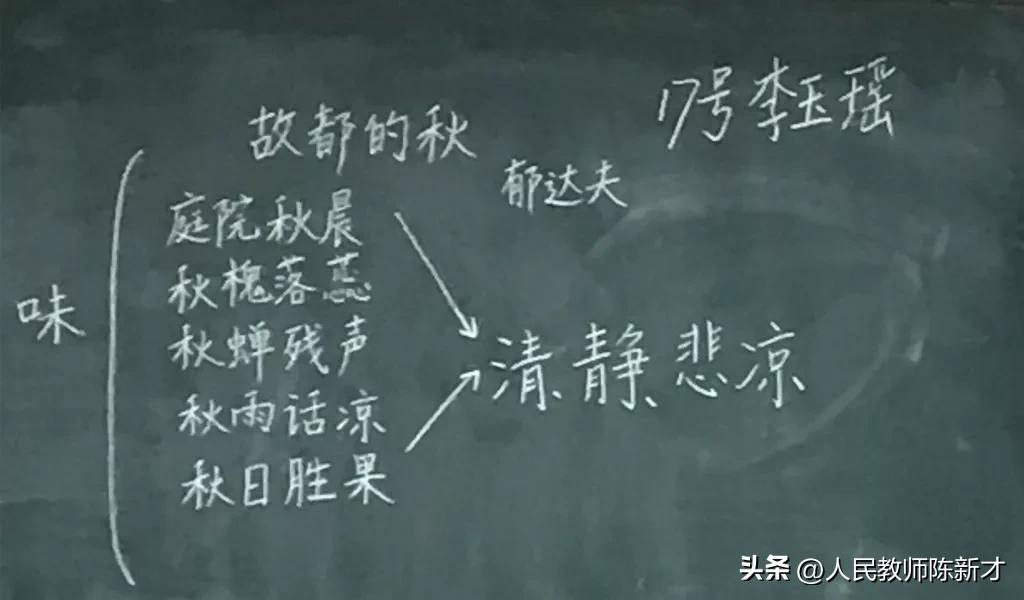 17号李玉瑶
故都的秋
郁达夫
味
庭院秋晨
秋槐落蕊
秋蝉残声
秋雨话凉
秋日胜果
清静悲凉
头条 @人民教师陈新才